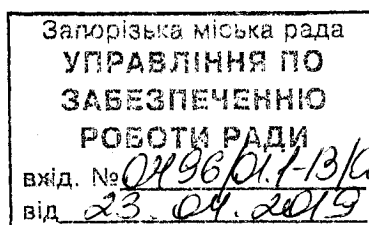 Запорізька міська рада
УПРАВЛІННЯ ПО
ЗАБЕЗПЕЧЕННЮ
РОБОТИ РАДИ
вхід. №
від 23. 04. 2019